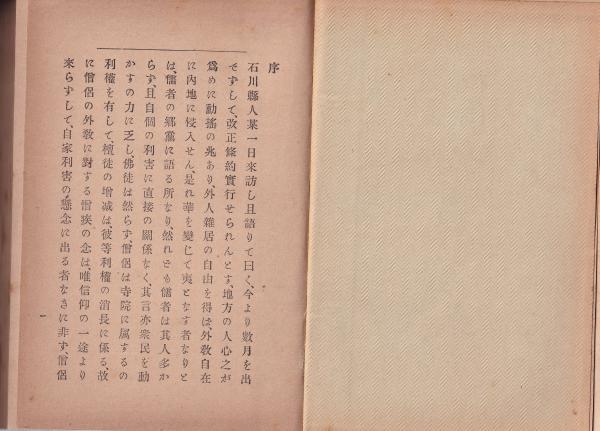 序
石川縣人某一日來訪し且語りて曰く、今より數月を出
でずして、改正條約實行せられんとす、地方の人心之が
爲めに動搖の兆あり、外人雜居の自由を得ば、外敎自在
に內地に侵入せん、是れ華を變じて夷となす者なりと
は、儒者の鄕黨に語る所なり、然れども儒者は其人多か
らず、且自個の利害に直接の關係なく、其言亦衆民を動
かすの力に乏し、佛徒は然らず、僧侶は寺院に属するの
利權を有して、檀徒の增减は、彼等利權の消長に係る、故
に僧侶の外敎に對する憎疾の念は、唯信仰の一途より
來らずして、自家利害の懸念に出る者なきに非ず、僧侶
一